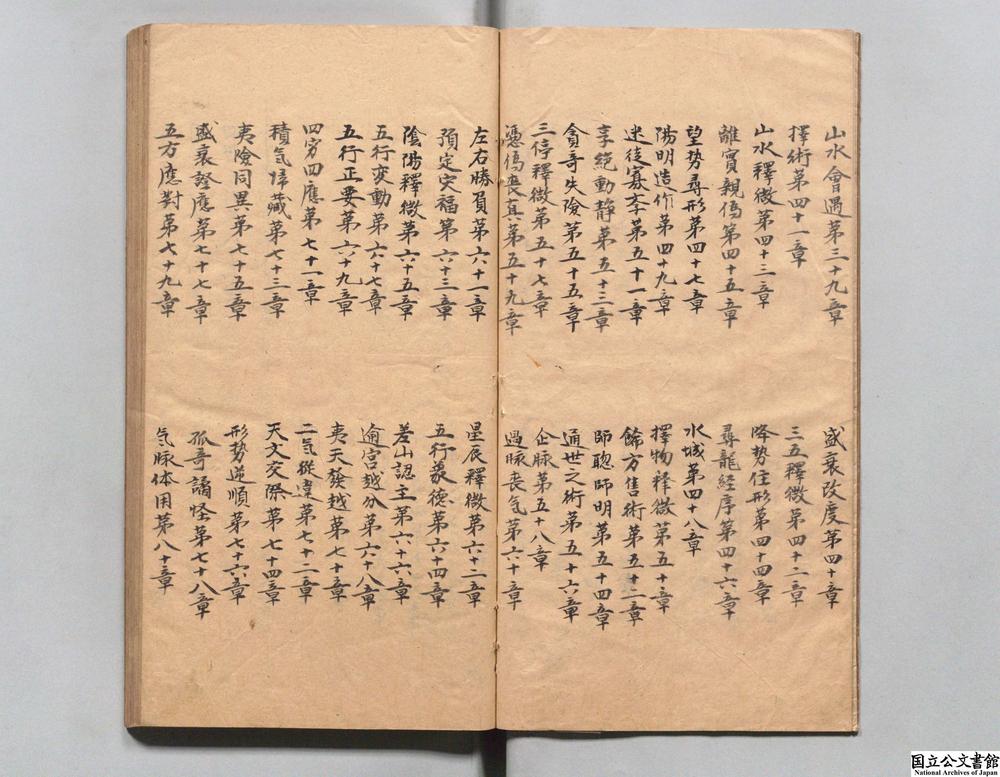 山水會遇第三十九章
盛衰改度第四十章
擇術第四十一章
三五釋微第四十二章
山水釋微第四十三章
降势住形第四十四章
離實親偽第四十五章
尋龍経序第四十六章
望势尋形第四十七章
水城第四十八章
陽明造作第四十九章
擇物釋微第五十章
迷徒寡李第五十一章
餘方售術第五十二章
享絶動静第五十三章
師聰師明第五十四章
貪奇失險第五十五章
通世之術第五十六章
三停釋微第五十七章
企脉第五十八章
憑偽喪真第五十九章
過脉喪气第六十章
左右勝負第六十一章
星辰釋微第六十二章
預定灾福第六十三章
五行象德第六十四章
陰陽釋微第六十五章
差山認主第六十六章
五行変動第六十七章
逾宫越分第六十八章
五行正要第六十九章
夷天發越第七十章
四穷四應第七十一章
二气從違第七十二章
積气歸藏第七十三章
天文交際第七十四章
夷險同異第七十五章
形勢逆順第七十六章
盛衰證應第七十七章
孤奇譎怪第七十八章
五方應對第七十九章
气脉体用第八十章
国立公文書館
National Archives of Japan